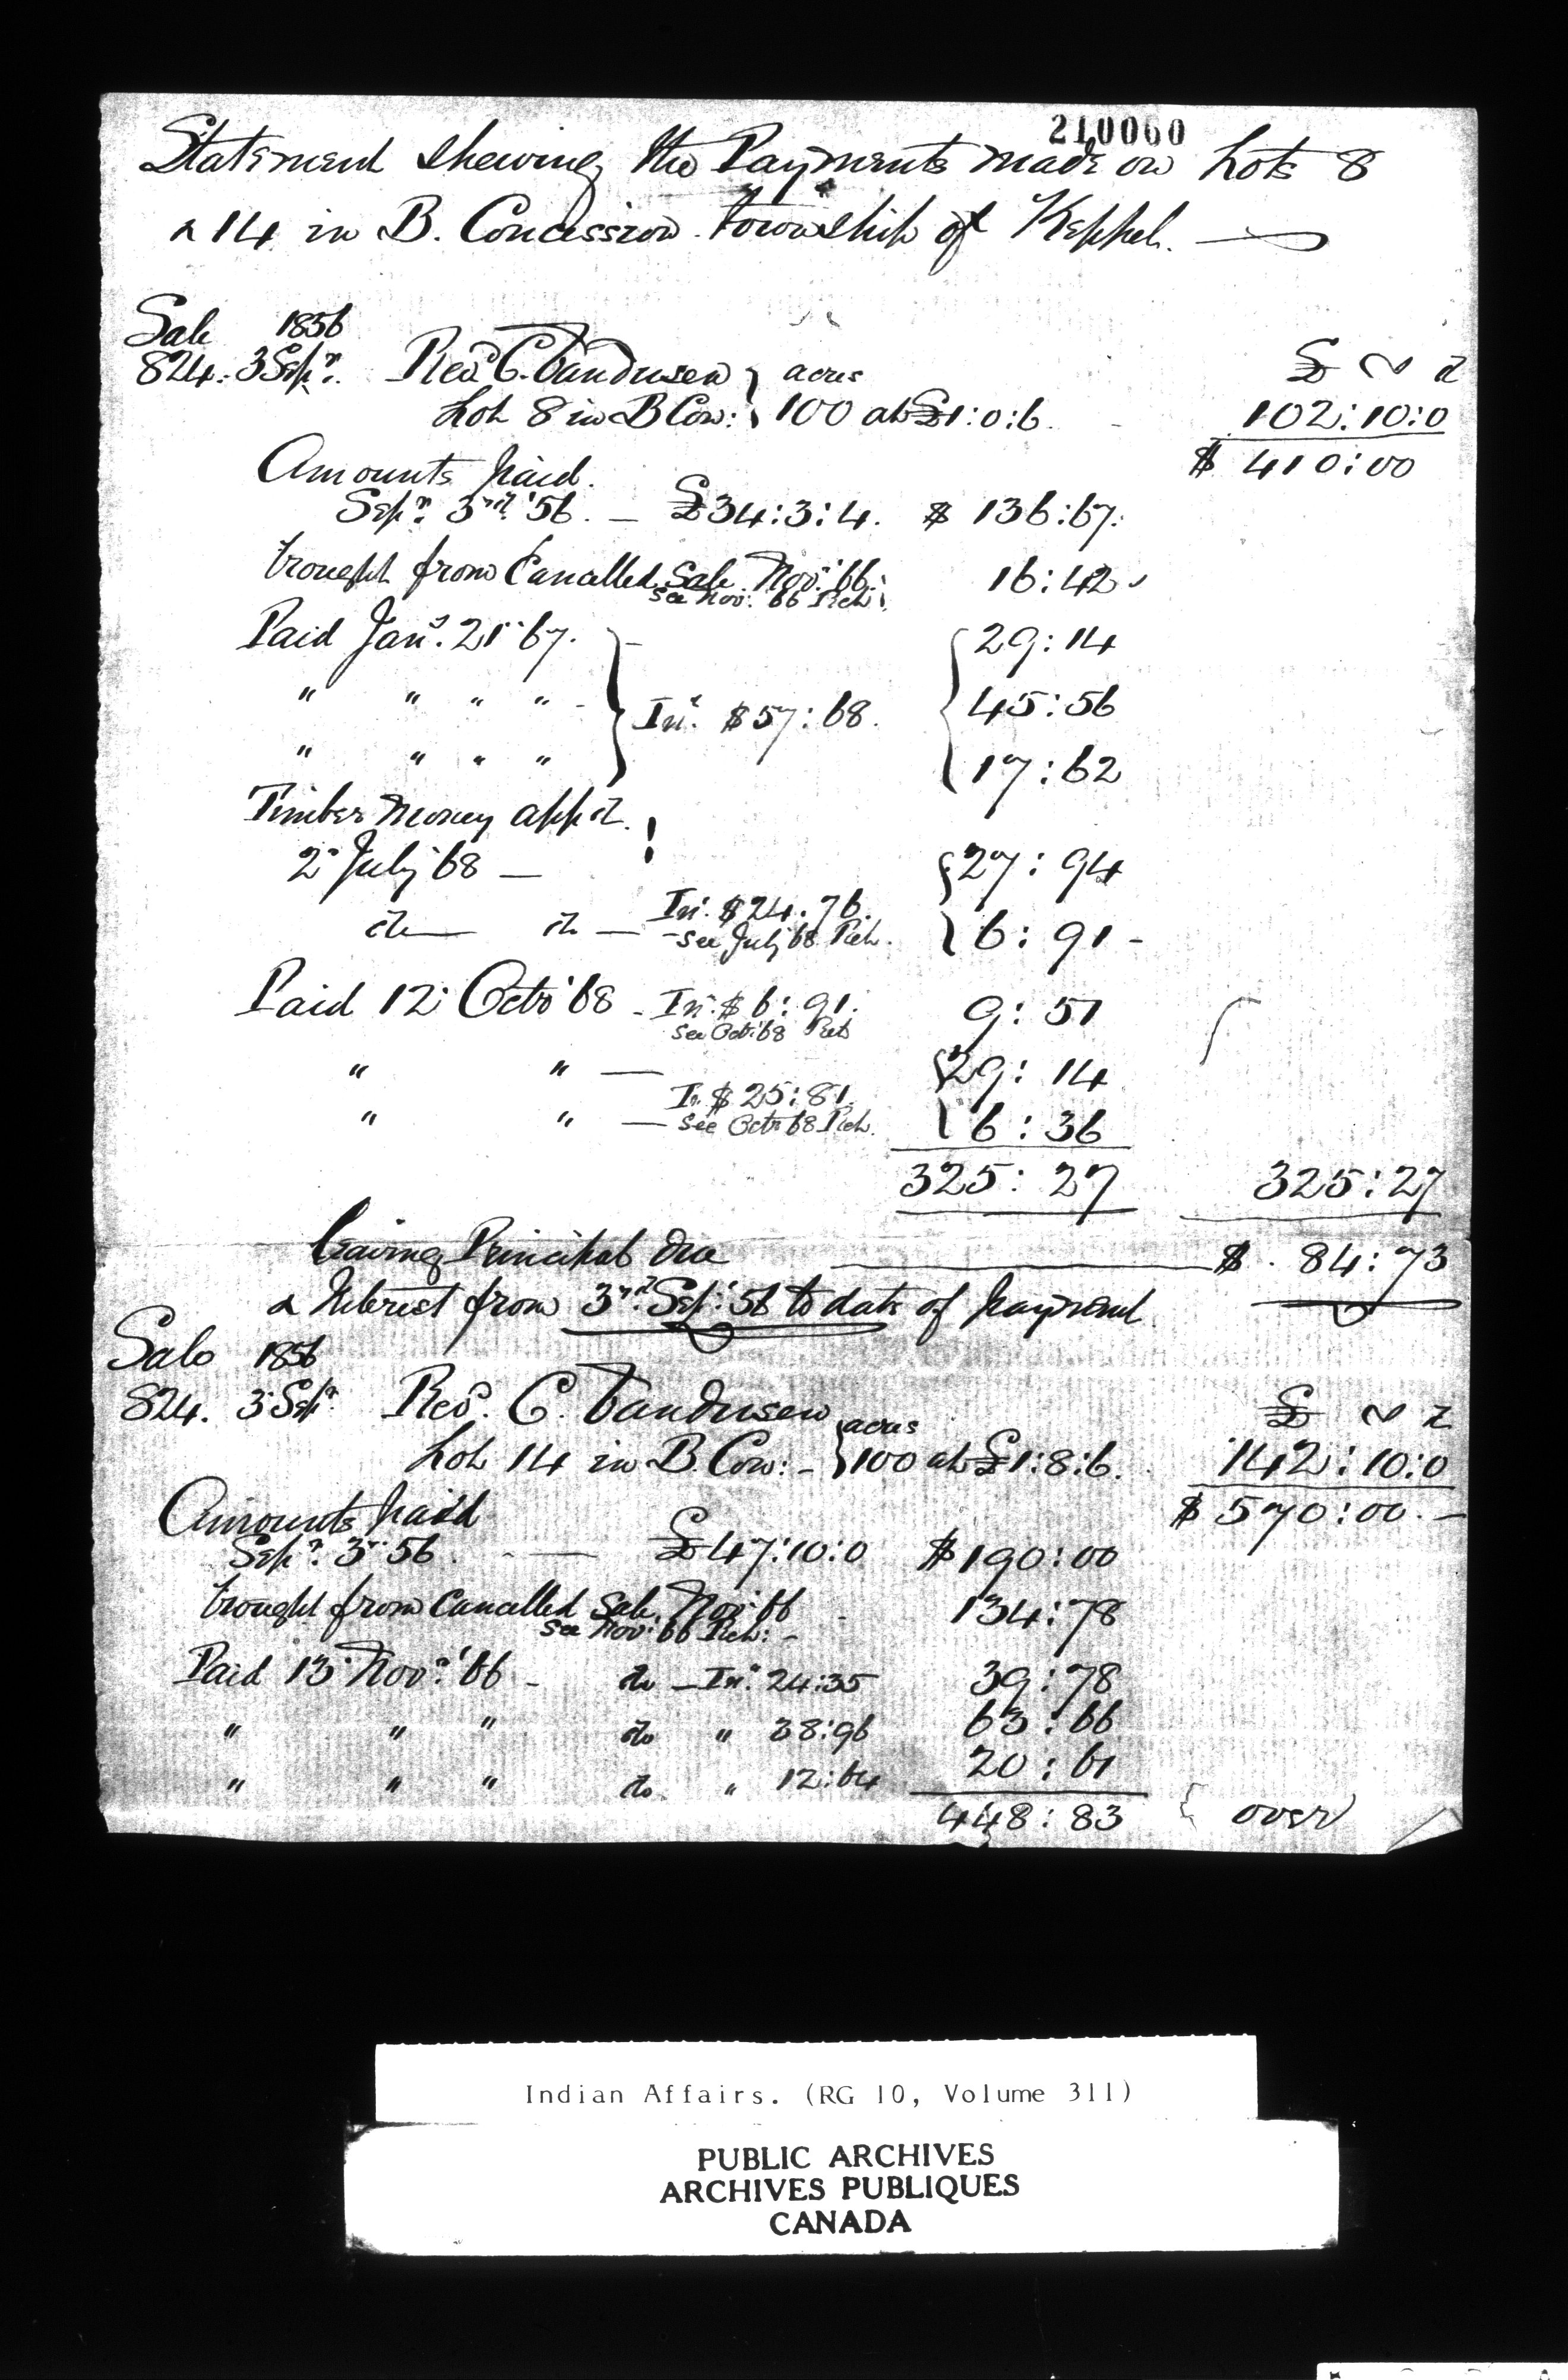 210060
Statement shewing the Payments made on Lots 8
& 14 in B. Concession Township of Keppel.
Sale 1856
824. 3 Sepr. Revd. C. Vandusen } acres £ s d
Lot 8 in B Con: } 100 at £1:0:6. 102:10:0
Amounts paid. $ 410:00
Sepr. 3rd. '56. — £34:3:4. $ 136:67.
brought from Cancelled Sale Novr. '66. 16:42
See Nov: '66 Ret:
Paid Jany. 21 '67. } { 29:14
" " " " } Int. $57:68. { 45:56
" " " " } { 17:62
Timber Money appd.
2 July '68 — { 27:94
do — do — Int. $24.76. { 6:91 -
See July '68 Ret.
Paid 12 Octr '68 - Int. $6:91. 9:51
See Oct: '68 Ret
" " — { 29:14
In. $25:81.
" " — See Octr 68 Ret. { 6:36
325:27 325:27
Leaving Principal due $ 84:73
& Interest from 3rd. Sep: '56 to date of payment
Sale 1856
824. 3 Sepr. Revd. C. Vandusen } acres £ s d
Lot 14 in B. Con: - } 100 at £1:8:6. 142:10:0
Amounts paid $ 570:00. -
Sepr. 3rd 56. — £47:10:0 $190:00
brought from Cancelled Sale, Nov: 66 - 134:78
See Nov: 66 Ret: -
Paid 13 Novr. '66 - do - Int. 24:35 39:78
" " " do " 38:96 63:66
" " " do " 12:64 20:61
448:83 { over
Indian Affairs. (RG 10, Volume 311)
PUBLIC ARCHIVES
ARCHIVES PUBLIQUES
CANADA